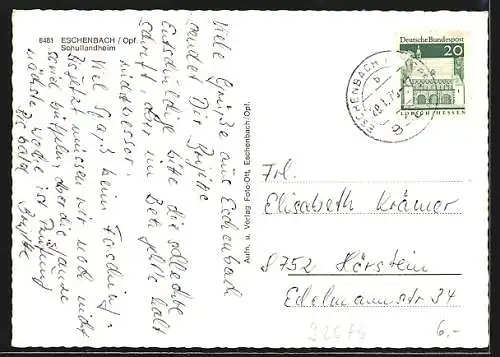 8481 ESCHENBACH / Opf.
Schullandheim
Viele Grüße aus Eschenbach
sendet Dir Brigitte
Entschuldige bitte die schlechte
Schrift, aber im Bett geht's halt
nicht besser.
Viel Spaß beim Fasching!
müssen wir noch nicht
aber die ganze
nächste Woche ist Prüfung
Bis bald
Aufn. u. Verlag Foto-Ott, Eschenbach/Opf.
Deutsche Bundespost
20
LORSCH HESSEN
ESCHENBACH
b
8
Frl.
Elisabeth Krämer
8752 Hörstein
Edelmannstr 34
92676
6.-